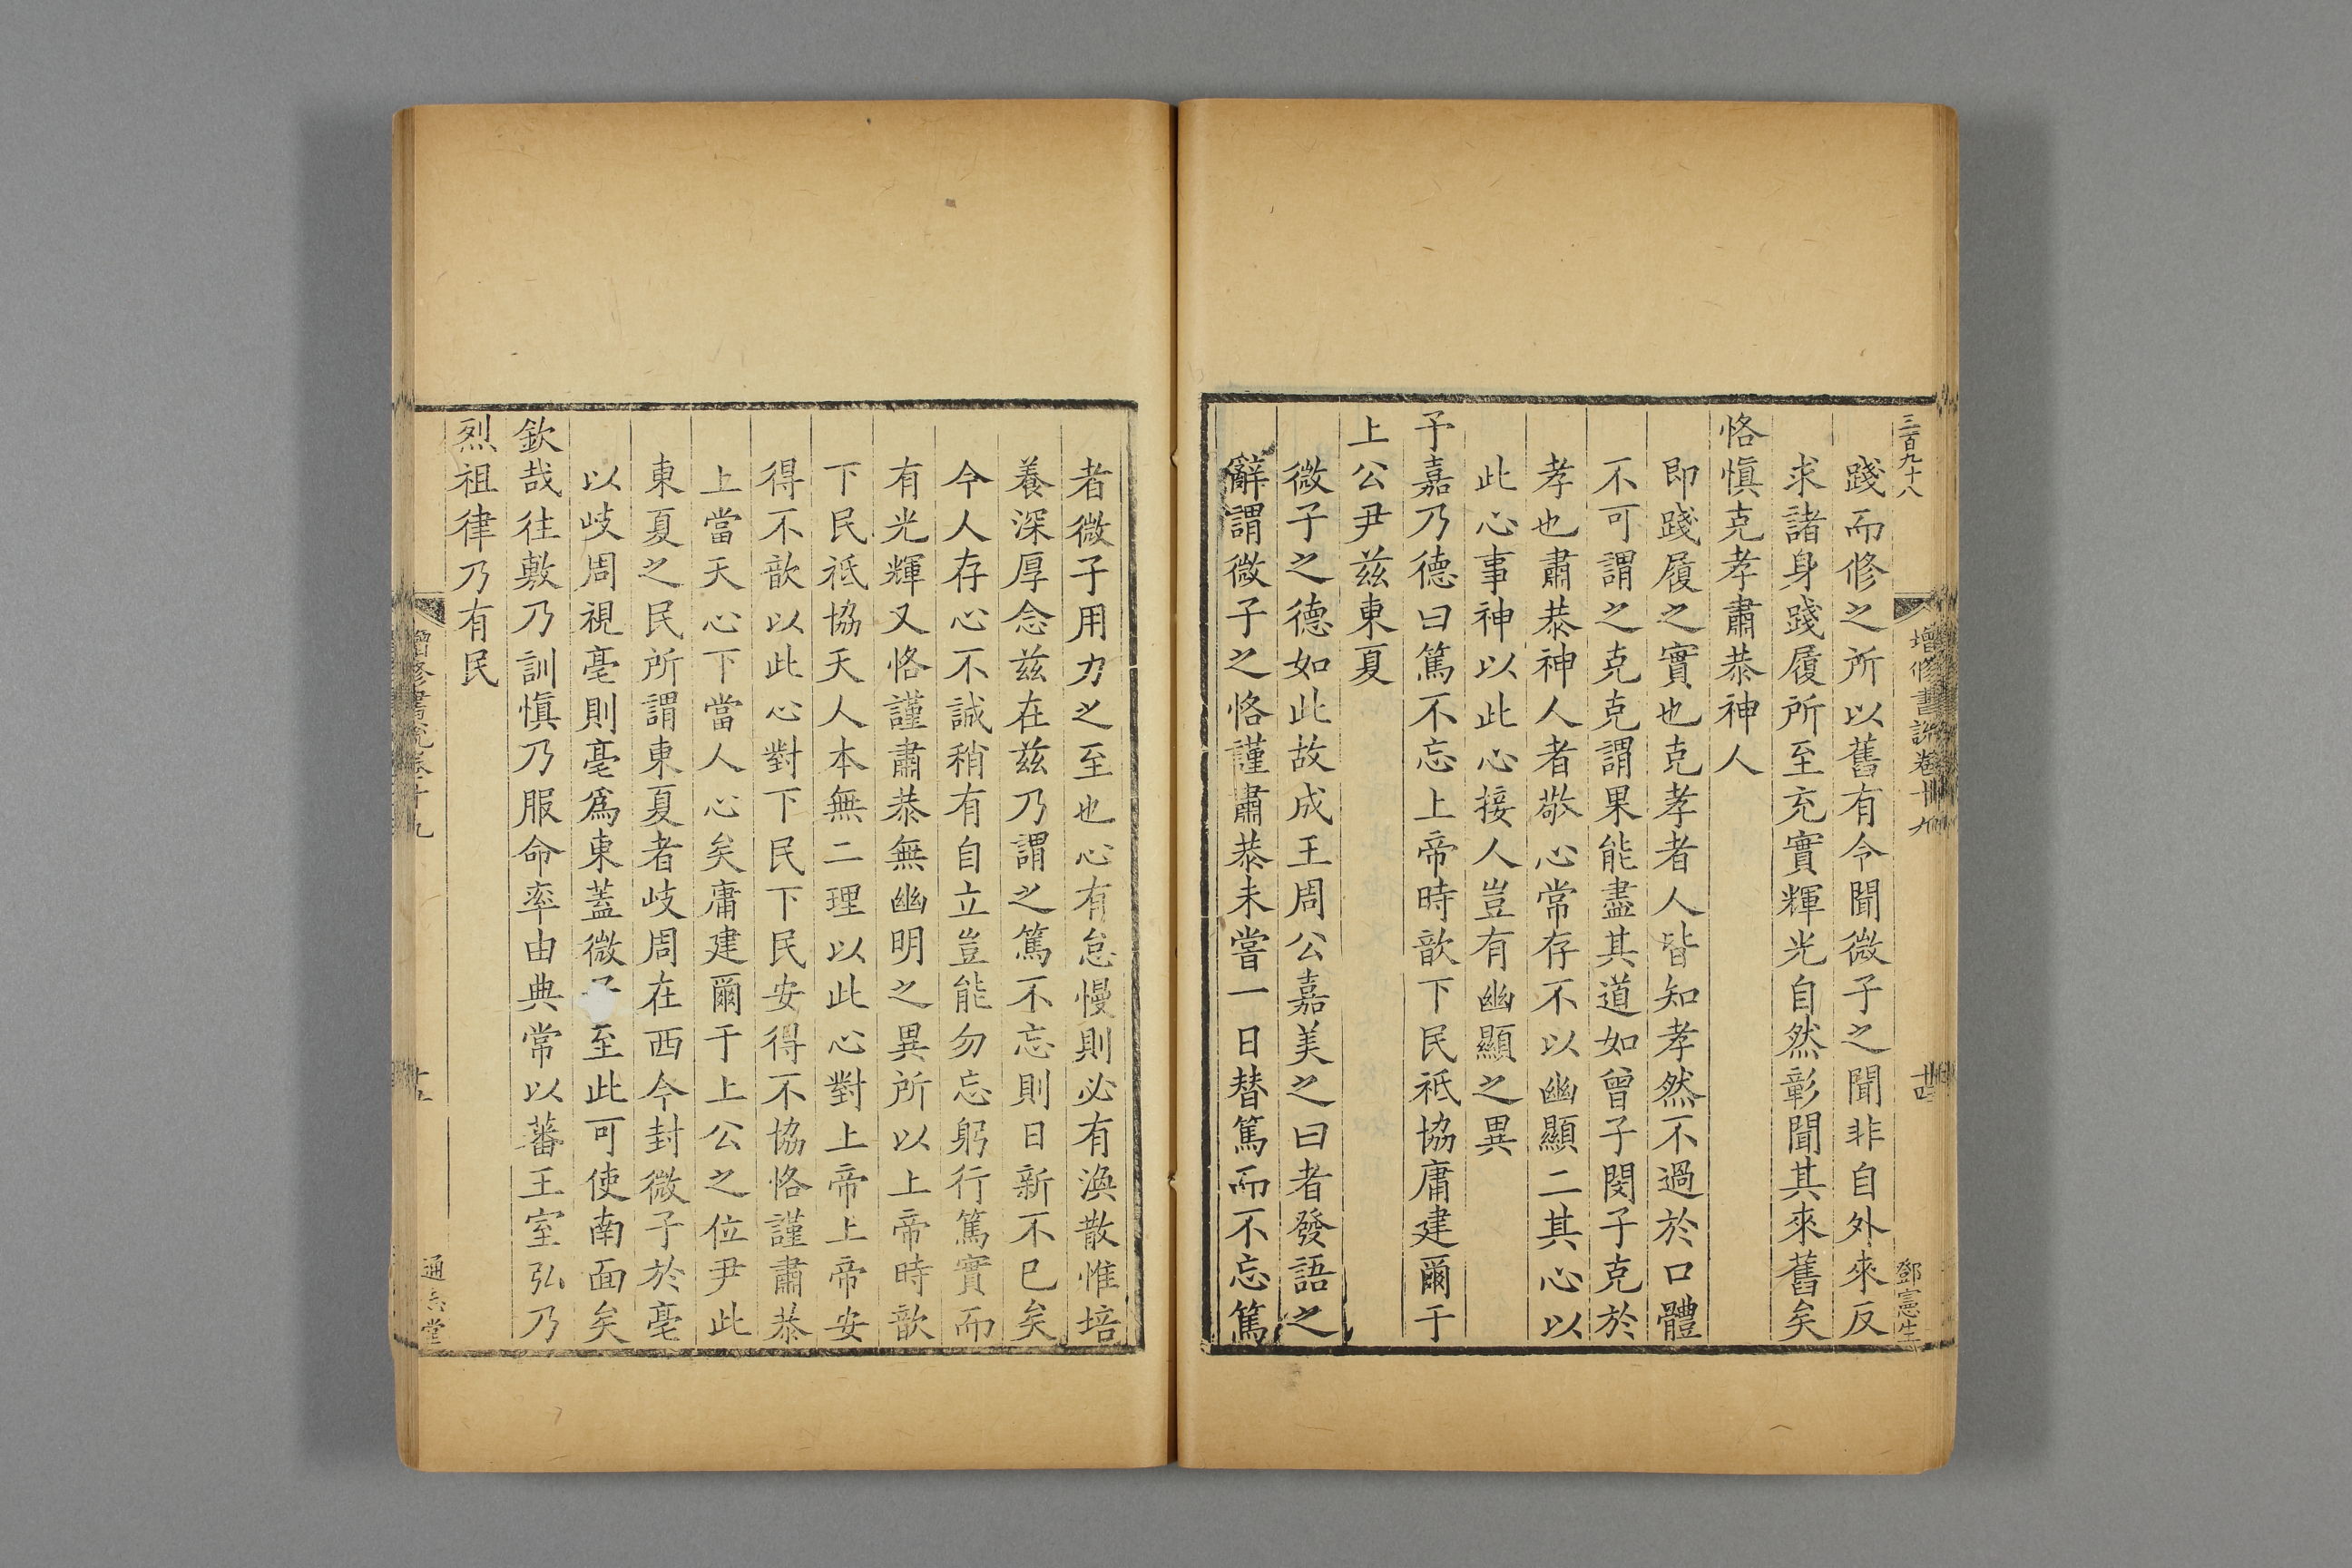 三百九十八
增修書說卷十九
鄧憲生
踐而修之所以舊有令聞微子之聞非自外來反
求諸身踐履所至充實輝光自然彰聞其來舊矣
恪愼克孝肅恭神人
即踐履之實也克孝者人皆知孝然不過於口體
不可謂之克克謂果能盡其道如曾子閔子克於
孝也肅恭神人者敬心常存不以幽顯二其心以
此心事神以此心接人豈有幽顯之異
予嘉乃德曰篤不忘上帝時歆下民祗協庸建爾于
上公尹兹東夏
微子之德如此故成王周公嘉美之曰者發語之
辭謂微子之恪謹肅恭未嘗一日替篤而不忘篤
者微子用力之至也心有怠慢則必有渙散惟培
養深厚念兹在兹乃謂之篤不忘則日新不已矣
今人存心不誠稍有自立豈能勿忘躬行篤實而
有光輝又恪謹肅恭無幽明之異所以上帝時歆
下民祗協天人本無二理以此心對上帝上帝安
得不歆以此心對下民下民安得不協恪謹肅恭
上當天心下當人心矣庸建爾于上公之位尹此
東夏之民所謂東夏者岐周在西今封微子於亳
以岐周視亳則亳爲東蓋微子至此可使南面矣
欽哉往敷乃訓愼乃服命率由典常以蕃王室弘乃
烈祖律乃有民
增修書說卷十九
通志堂